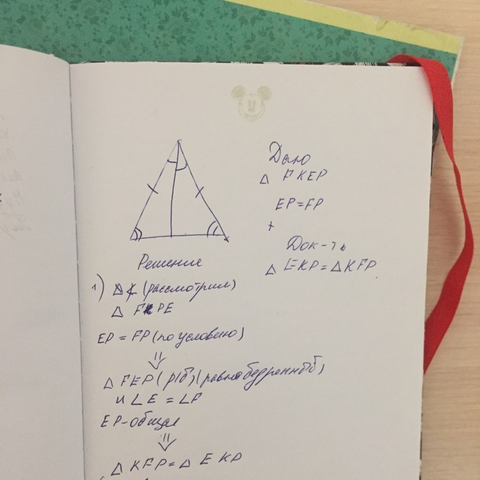 Дано
△ FKEP
EP=FP
Док-ть
△ EKP=△KFP
Решение
1) (рассмотрим)
△ FKPE
EP = FP (по условию)
⇓
△ FEP (р/б) (равнобедренный)
и ∠E = ∠F
EP-общая
⇓
△ KFP=△ EKP